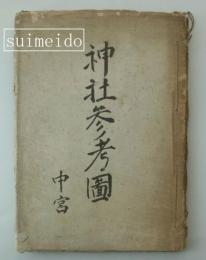 suimeido
神社参考圖
中宮